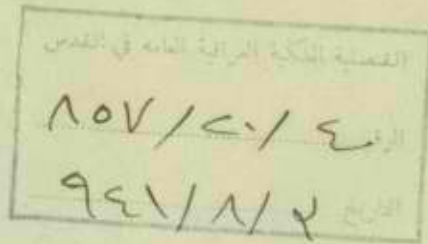 القنصلية الملكية العراقية العامه في القدس
الرقم ٨٥٧/٢٠/٤
التاريخ ٩٤١/٨/٢